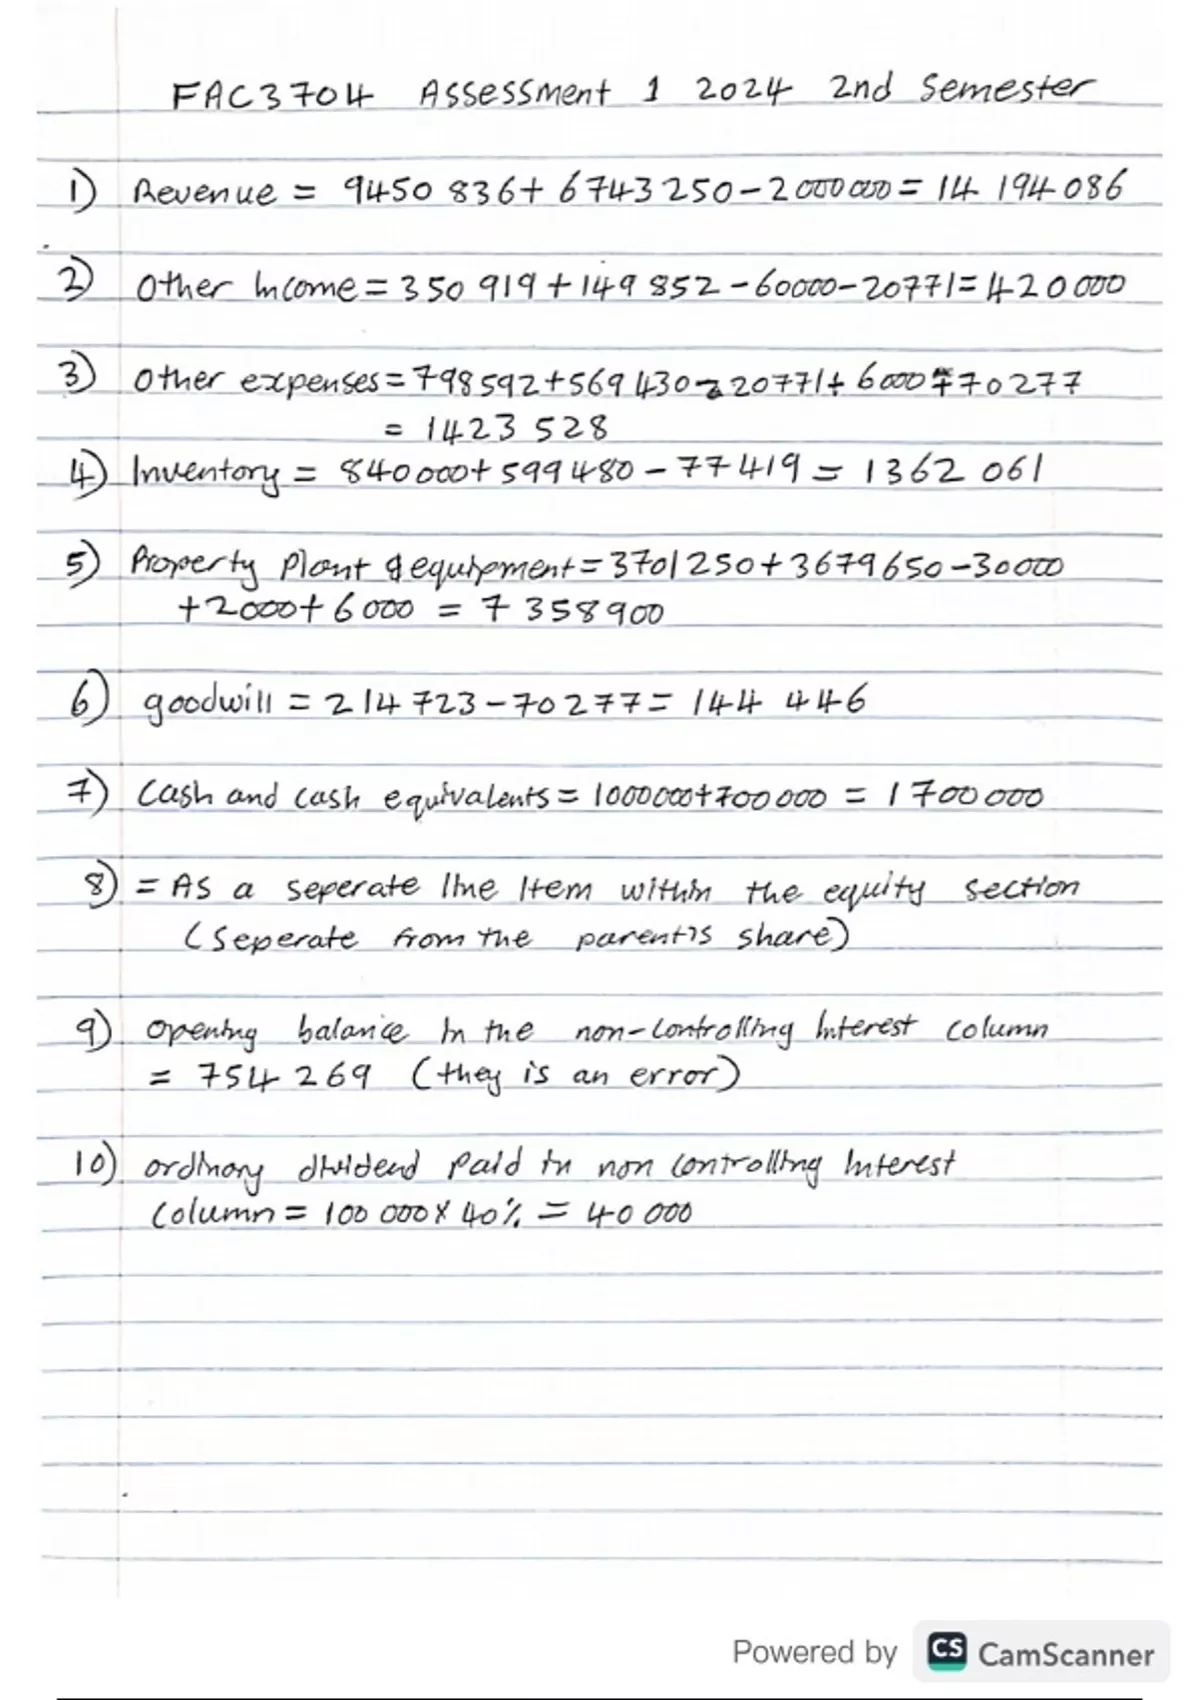 FAC3704 Assessment 1 2024 2nd Semester
1) Revenue = 9450 836+ 6743250-2000000= 14 194 086
2) Other Income=350 919+149 852-60000-20771=420000
3) Other expenses=798592+569430-20771+6000+70277
= 1423 528
4) Inventory = 840000+599480-77419= 1362 061
5) Property Plant & equipment=3701250+3679650-30000
+2000+6000 = 7 358900
6) goodwill = 214723-70277= 144 446
7) Cash and cash equivalents = 1000000+700000 = 1700000
8) = As a seperate line Item within the equity section
(seperate from the parent's share)
9) opening balance in the non-controlling Interest column
= 754 269 (they is an error)
10) ordinary dividend paid in non controlling Interest
column = 100 000 X 40% = 40 000
Powered by CS CamScanner